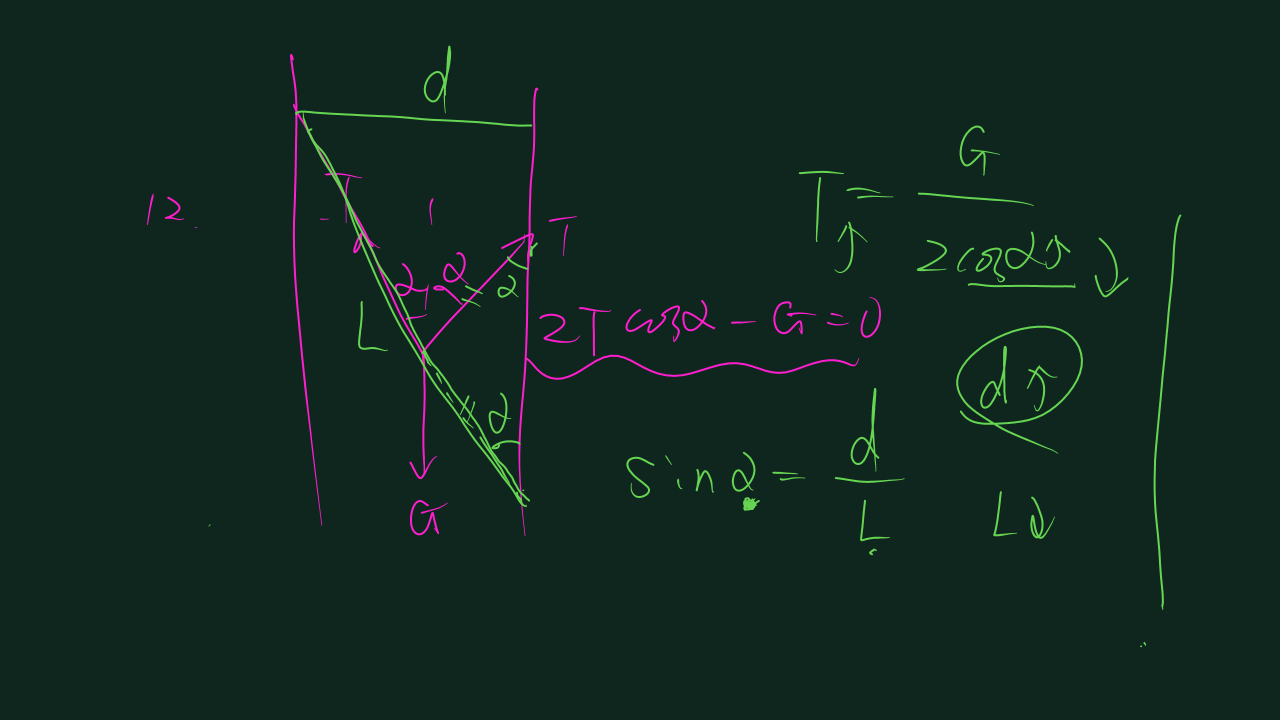 d
12.
T
T
α α
α
L
α
G
2T cosα - G = 0
T↑ = G / 2cosα↓
d↑
sinα = d / L
L↓